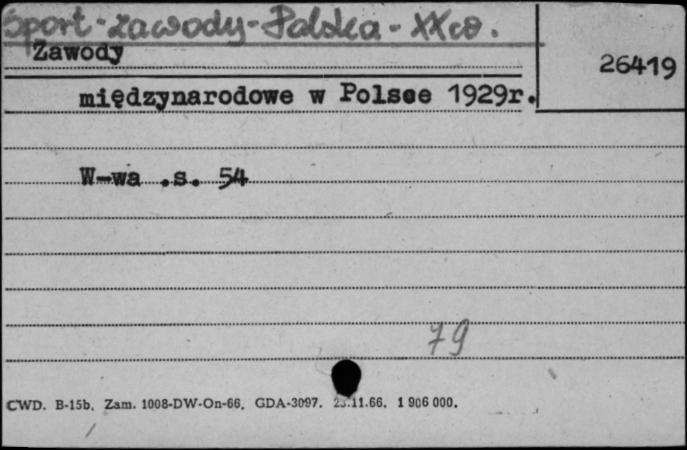 Sport-zawody-Polska-XXw.
Zawody
26419
międzynarodowe w Polsce 1929r.
W-wa .s. 54
79
CWD. B-15b. Zam. 1008-DW-On-66. GDA-3097. 23.11.66. 1 906 000.